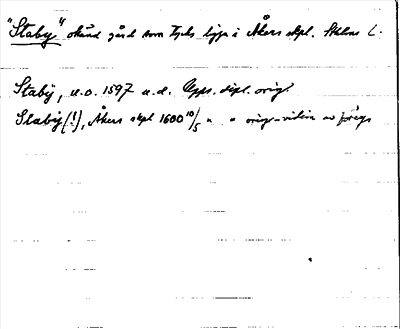 "Staby" okänd gård som tycks ligga i Åkers skpl. Sthlms L.
Staby, u.o. 1597 u.d. Upps. dipl. orig.
Slabÿ (!), Åkers skpl 1600 10/5 " " orig-vidim av föreg